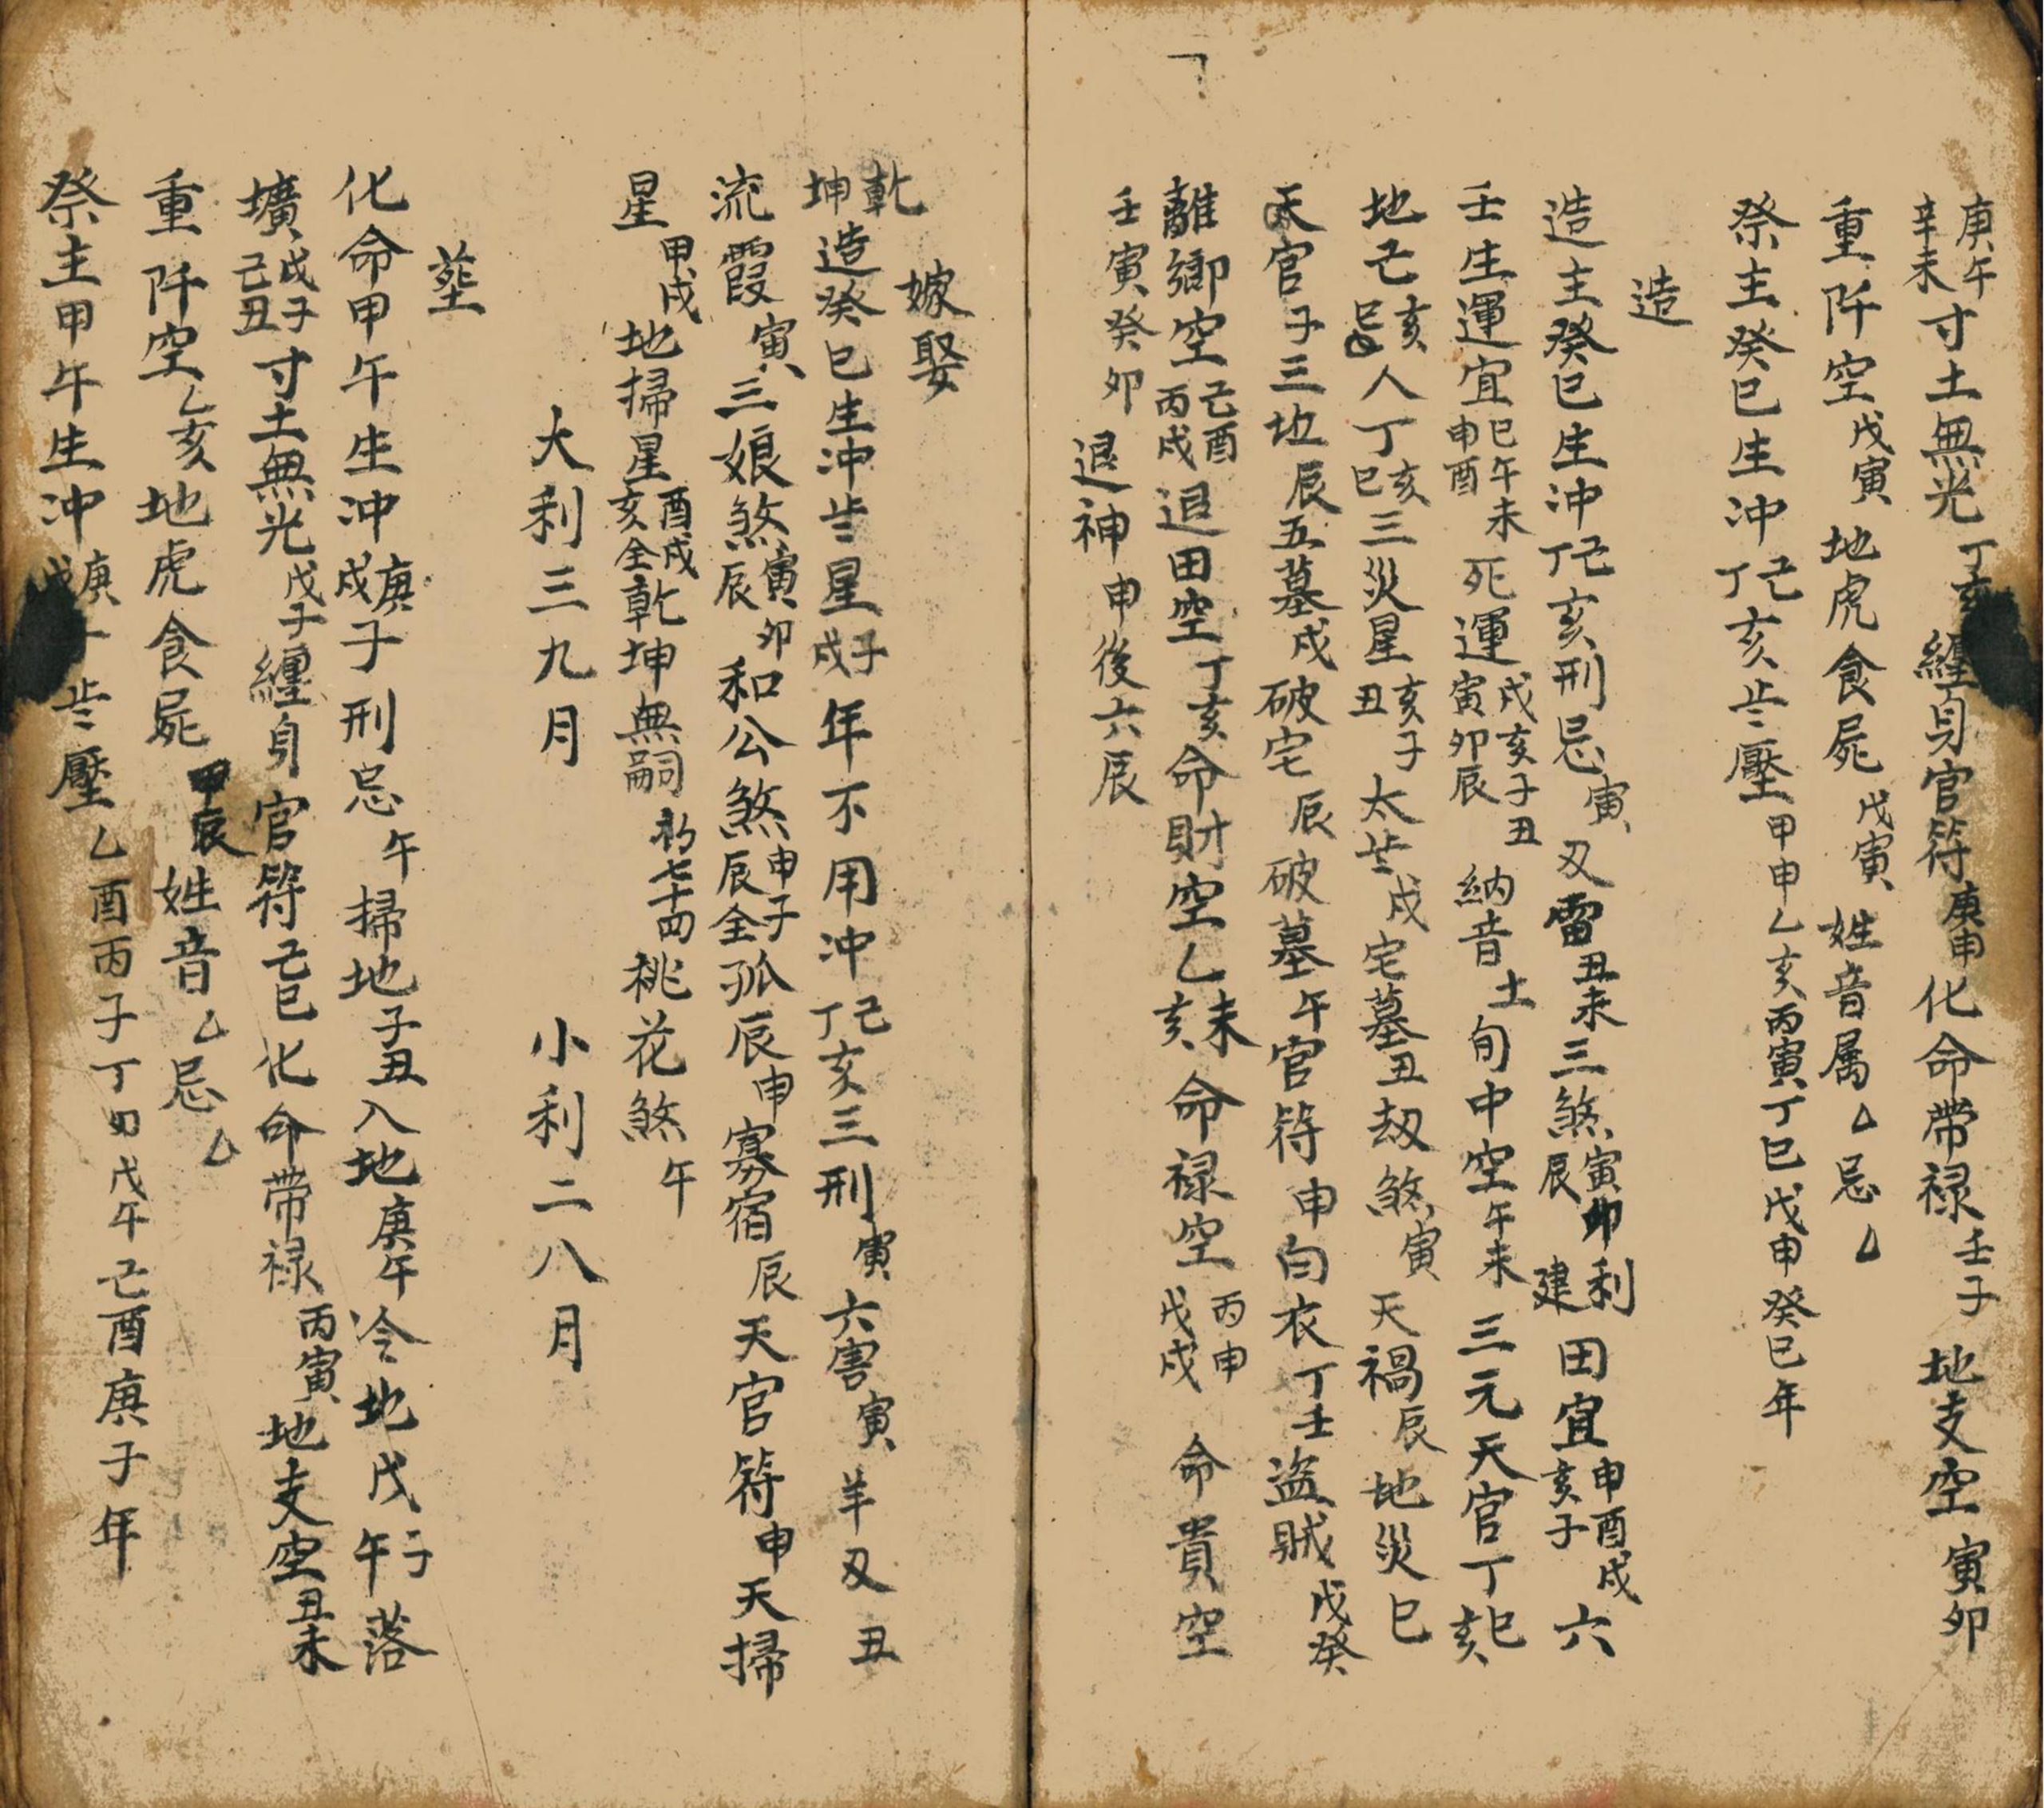 庚午辛未寸土無光丁亥纏身官符庚申化命带禄壬子地支空寅卯
重阡空戊寅地虎食屍戊寅姓音属厶忌厶
祭主癸巳生冲丁己亥㱏壓甲申乙亥丙寅丁巳戊申癸巳年
造
造主癸巳生冲丁己亥刑忌寅又雷丑未三煞寅卯辰利建田宜申酉戌亥子六
壬生運宜巳午未申酉死運戌亥子丑寅卯辰納音土旬中空午未三元天官丁巳亥
地亡亥巳人丁亥巳三災星亥子丑太㱏戌宅墓丑刼煞寅天禍辰地災巳
天官子三地辰五墓戌破宅辰破墓午官符申白衣丁壬盗賊戊癸
離鄉空己酉丙戌退田空丁亥命財空乙未亥命禄空丙申戊戌命貴空
壬寅癸卯退神申後六辰
嫁娶
乾坤造癸巳生冲㱏星子戌年不用冲丁己亥三刑寅六害寅羊刃丑
流霞寅三娘煞寅卯辰和公煞申子辰全孤辰申寡宿辰天官符申天掃
星甲戌地掃星酉戌亥全乾坤無嗣初七十四桃花煞午
大利三九月 小利二八月
塟
化命甲午生冲庚戊子刑忌午掃地子丑入地庚午冷地戊午子落
壙戊子己丑寸土無光戊子纏身官符己巳化命带禄丙寅地支空丑未
重阡空乙亥地虎食屍甲辰姓音厶忌厶
祭主甲午生冲庚戊子㱏壓乙酉丙子丁卯戊午己酉庚子年